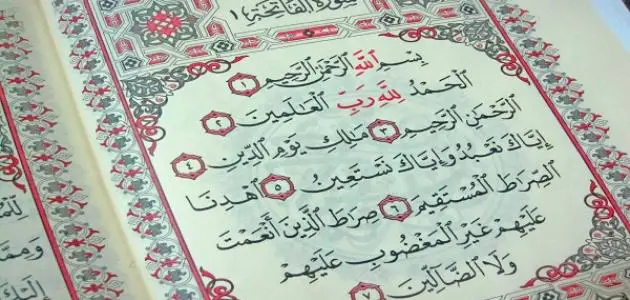 سورة الفاتحة ١
بِسْمِ اللَّهِ الرَّحْمَٰنِ الرَّحِيمِ ١
الْحَمْدُ لِلَّهِ رَبِّ الْعَالَمِينَ ٢
الرَّحْمَٰنِ الرَّحِيمِ ٣ مَالِكِ يَوْمِ الدِّينِ ٤
إِيَّاكَ نَعْبُدُ وَإِيَّاكَ نَسْتَعِينُ ٥ اهْدِنَا
الصِّرَاطَ الْمُسْتَقِيمَ ٦ صِرَاطَ الَّذِينَ أَنْعَمْتَ
عَلَيْهِمْ غَيْرِ الْمَغْضُوبِ عَلَيْهِمْ
وَلَا الضَّالِّينَ ٧